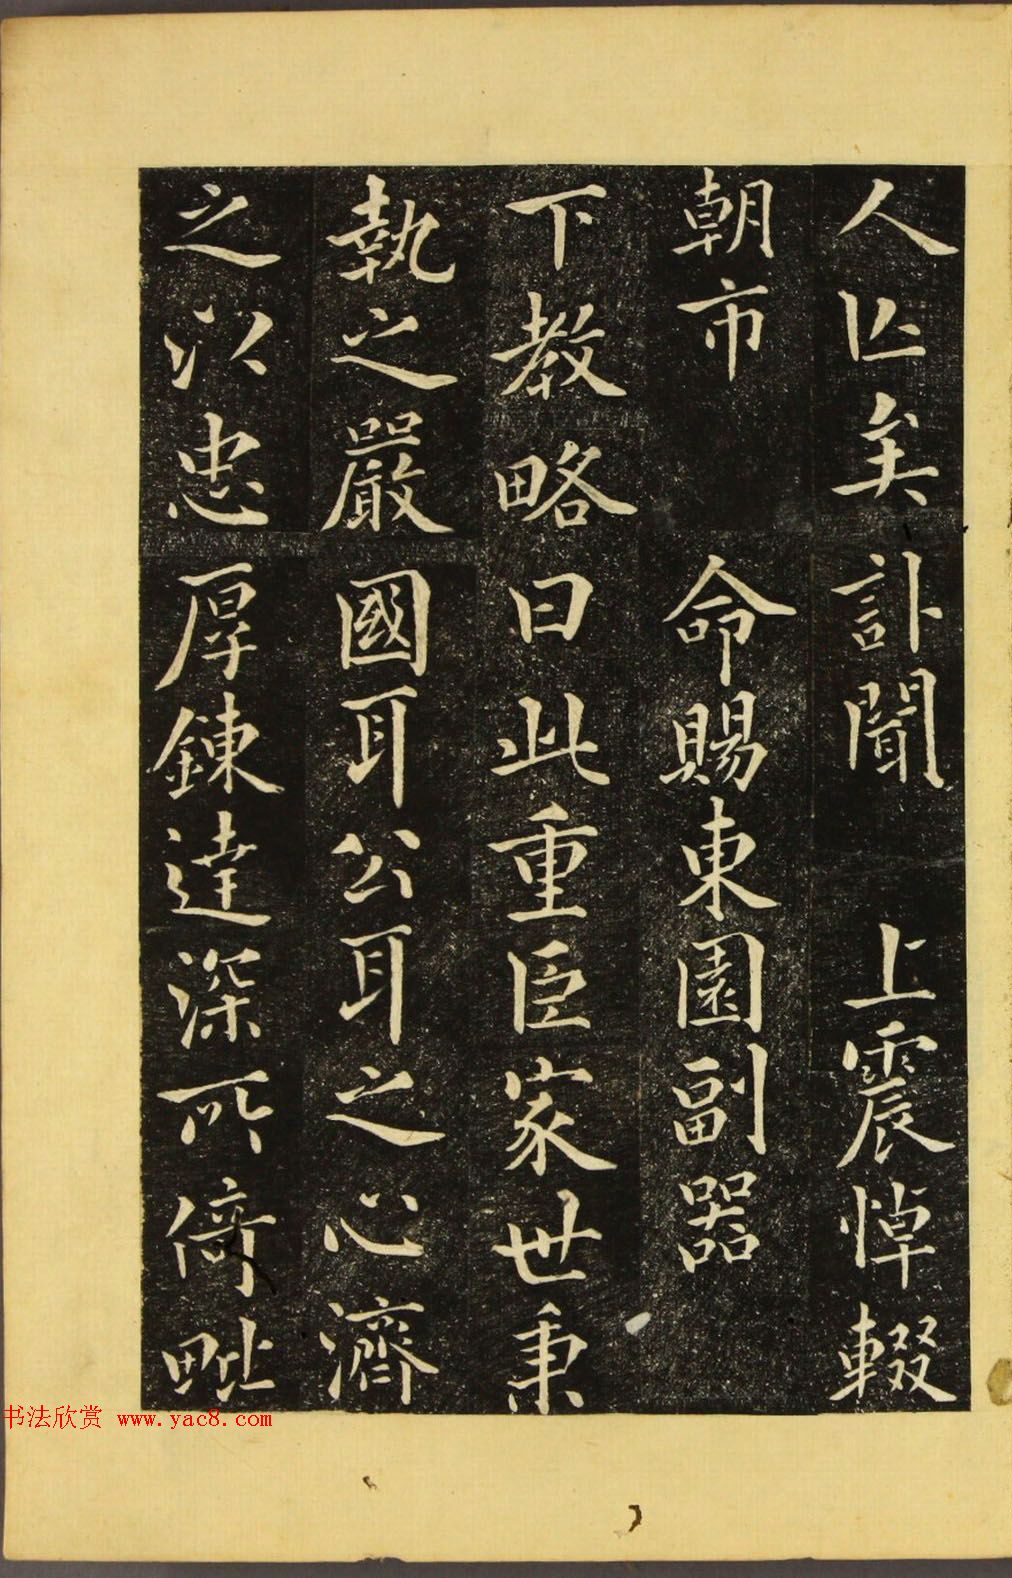 人亾矣訃聞 上震悼輟
朝市 命賜東園副器
下教略曰此重臣家世秉
執之嚴國耳公耳之心濟
之以忠厚錬達深所倚毗
书法欣赏 www.yac8.com